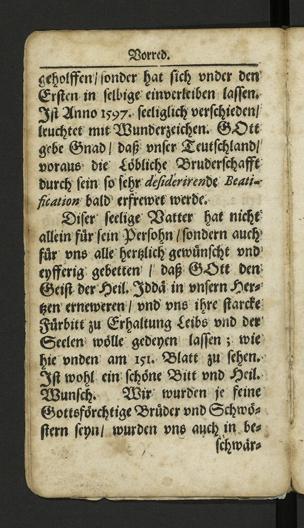 Vorred.
geholffen / sonder hat sich vnder den
Ersten in selbige einverleiben lassen.
Ist Anno 1597. seeliglich verschieden /
leuchtet mit Wunderzeichen. GOtt
gebe Gnad / daß vnser Teutschland /
voraus die Löbliche Bruderschafft
durch sein so sehr desiderirende Beati-
fication bald erfrewet werde.
Diser seelige Vatter hat nicht
allein für sein Persohn / sondern auch
für vns alle hertzlich gewünscht vnd
eyfferig gebetten / daß GOtt den
Geist der Heil. Jddä in vnsern Her-
tzen erneweren / vnd vns ihre starcke
Fürbitt zu Erhaltung Leibs vnd der
Seelen wölle gedeyen lassen; wie
hie vnden am 151. Blatt zu sehen.
Ist wohl ein schöne Bitt vnd Heil.
Wunsch. Wir wurden je seine
Gottsförchtige Brüder vnd Schwö-
stern seyn / wurden vns auch in be-
schwär-